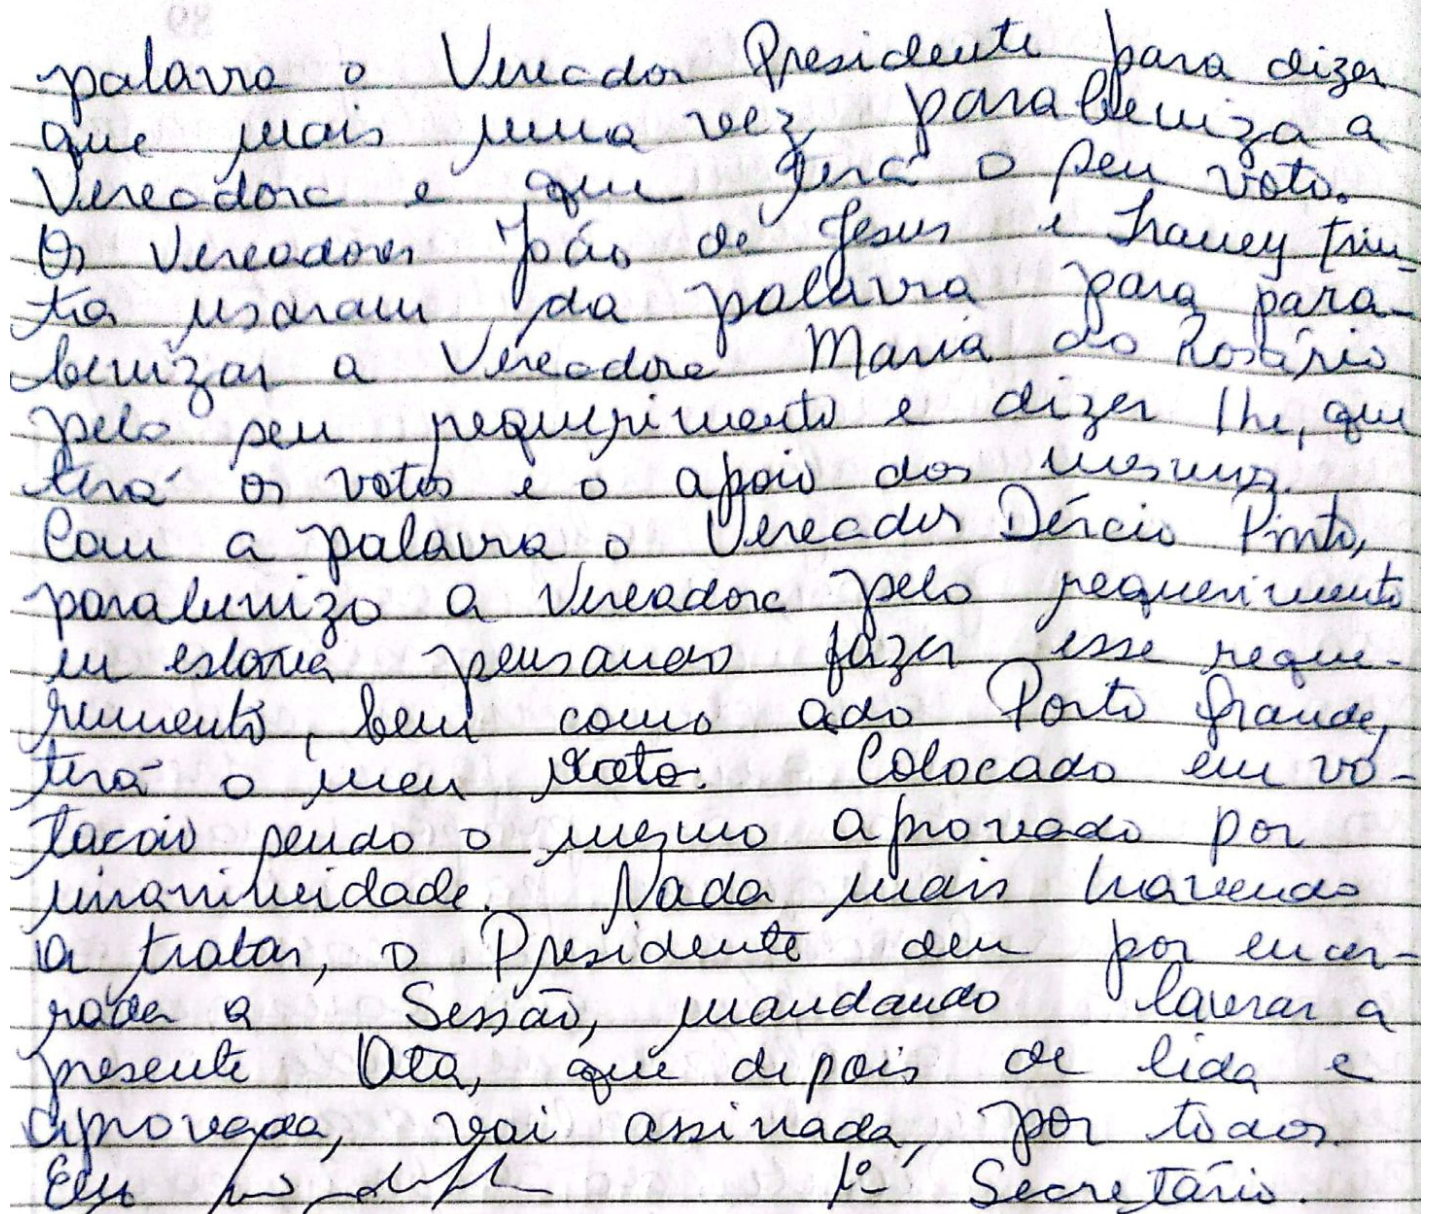 palavra o Vereador Presidente para dizer
que mais uma vez parabeniza a
Vereadora e que terá o seu voto.
Os Vereadores João de Jesus e Tracey Trin-
ta usaram da palavra para para-
benizar a Vereadora Maria do Rosário
pelo seu requerimento e dizer lhe, que
terá os votos e o apoio dos mesmos.
Com a palavra o Vereador Dércio Pinto,
parabenizo a Vereadora pelo requerimento
eu estava pensando fazer esse reque-
rimento, bem como a do Porto Grande,
terá o meu voto. Colocado em vo-
tacão sendo o mesmo aprovado por
unanimidade. Nada mais havendo
a tratar, o Presidente deu por encer-
rada a Sessão, mandando lavrar a
presente Ata, que depois de lida e
aprovada, vai assinada, por todos.
Eu, 1º Secretário.